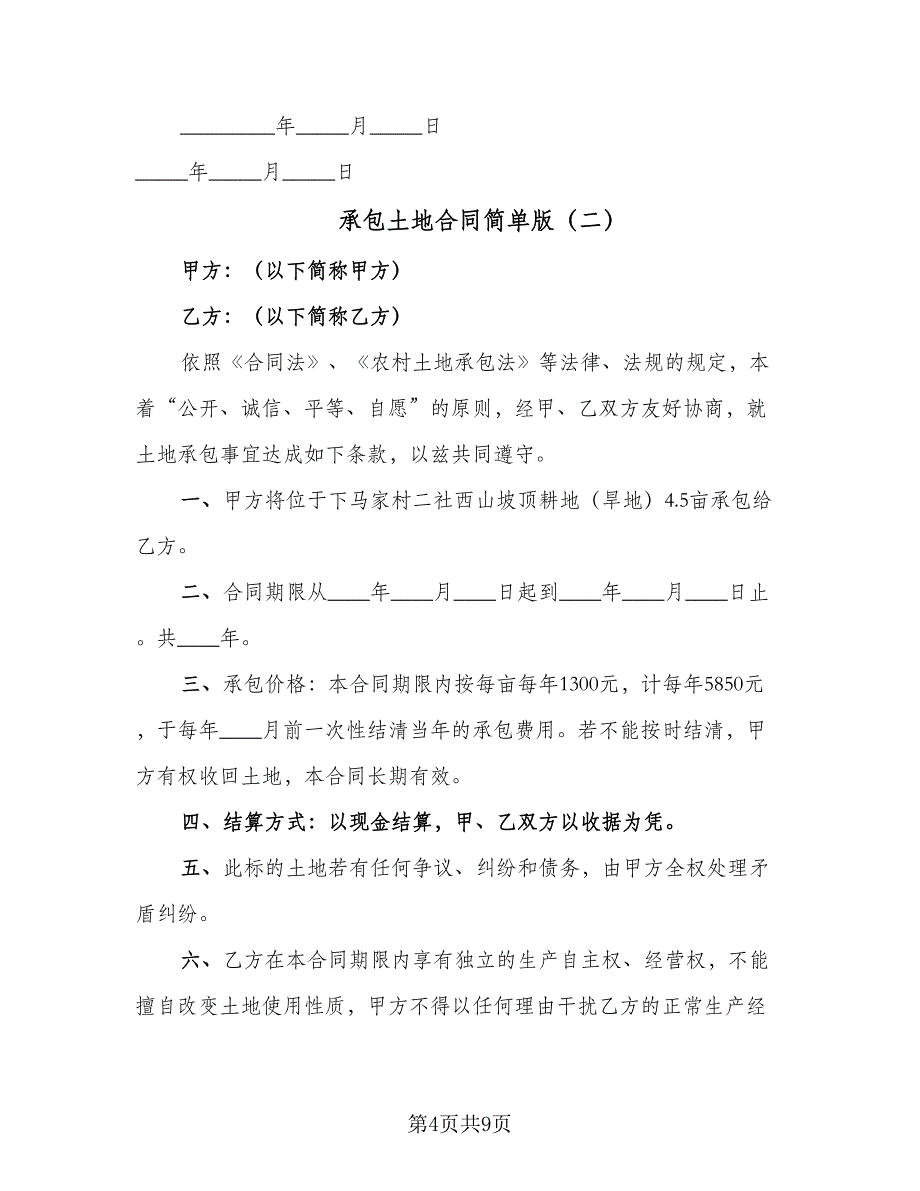 _________年_____月_____日
_____年_____月_____日
承包土地合同简单版（二）
甲方：（以下简称甲方）
乙方：（以下简称乙方）
依照《合同法》、《农村土地承包法》等法律、法规的规定，本
着“公开、诚信、平等、自愿”的原则，经甲、乙双方友好协商，就
土地承包事宜达成如下条款，以兹共同遵守。
一、甲方将位于下马家村二社西山坡顶耕地（旱地）4.5亩承包给
乙方。
二、合同期限从____年____月____日起到____年____月____日止
。共____年。
三、承包价格：本合同期限内按每亩每年1300元，计每年5850元
，于每年____月前一次性结清当年的承包费用。若不能按时结清，甲
方有权收回土地，本合同长期有效。
四、结算方式：以现金结算，甲、乙双方以收据为凭。
五、此标的土地若有任何争议、纠纷和债务，由甲方全权处理矛
盾纠纷。
六、乙方在本合同期限内享有独立的生产自主权、经营权，不能
擅自改变土地使用性质，甲方不得以任何理由干扰乙方的正常生产经
第4页共9页